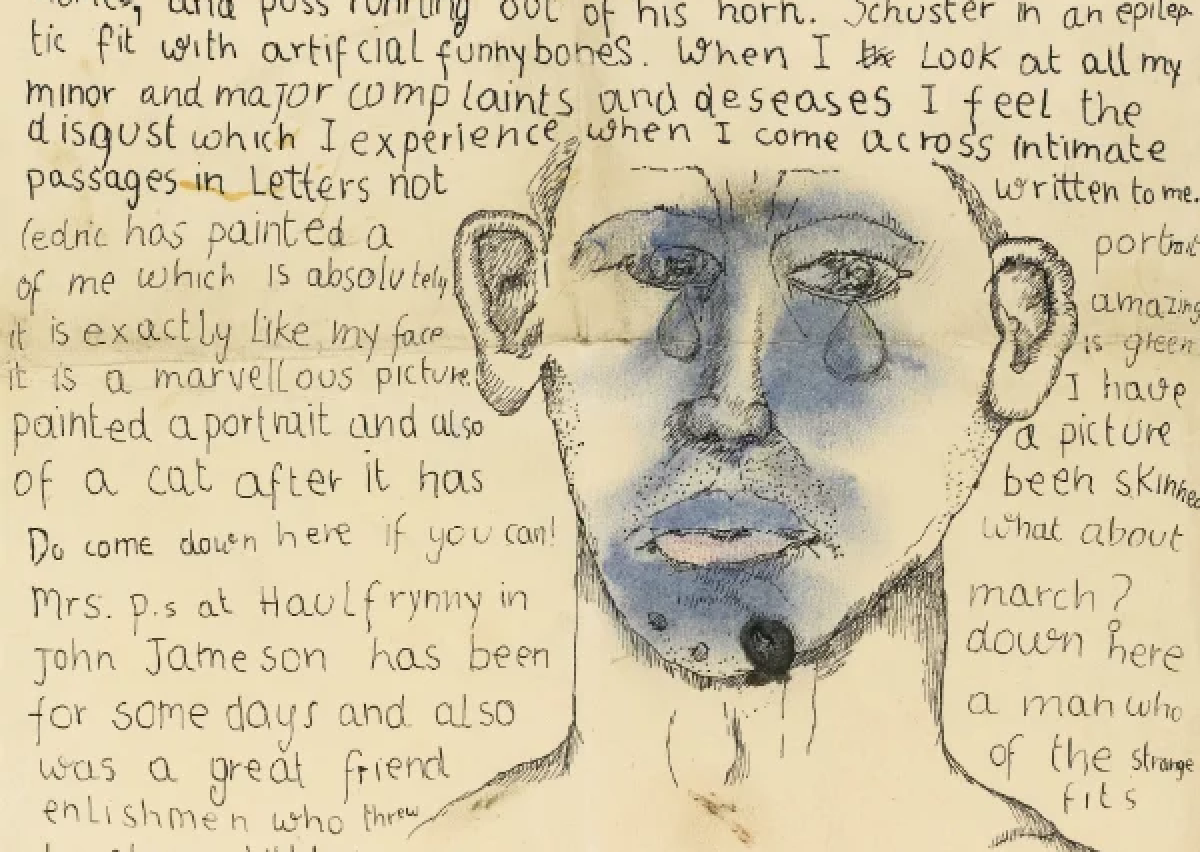 and puss running out of his horn. Schuster in an epilep-
tic fit with artifcial funnybones. When I Look at all my
minor and major complaints and deseases I feel the
disgust which I experience when I come across intimate
passages in Letters not written to me.
Cedric has painted a portrait
of me which is absolutely amazing
it is exactly Like my face is green
it is a marvellous picture. I have
painted a portrait and also a picture
of a cat after it has been skinned
Do come down here if you can! What about
march?
Mrs. p.s at Haulfrynny in down here
John Jameson has been a man who
for some days and also of the strange
was a great friend fits
enlishmen who threw